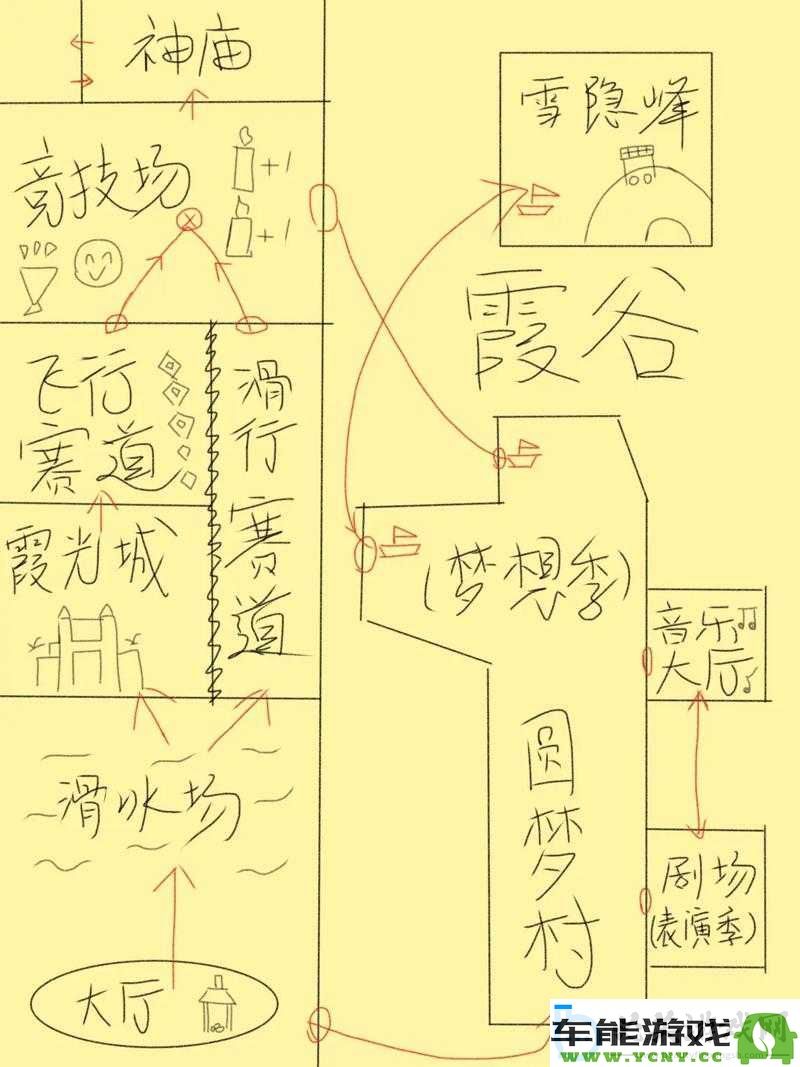 神庙
竞技场
+1
+1
飞行
赛道
滑行赛道
霞光城
滑冰场
大厅
雪隐峰
霞谷
(梦想季)
音乐
大厅
圆梦村
剧场
(表演季)
车能游戏
WWW.YCNY.CC